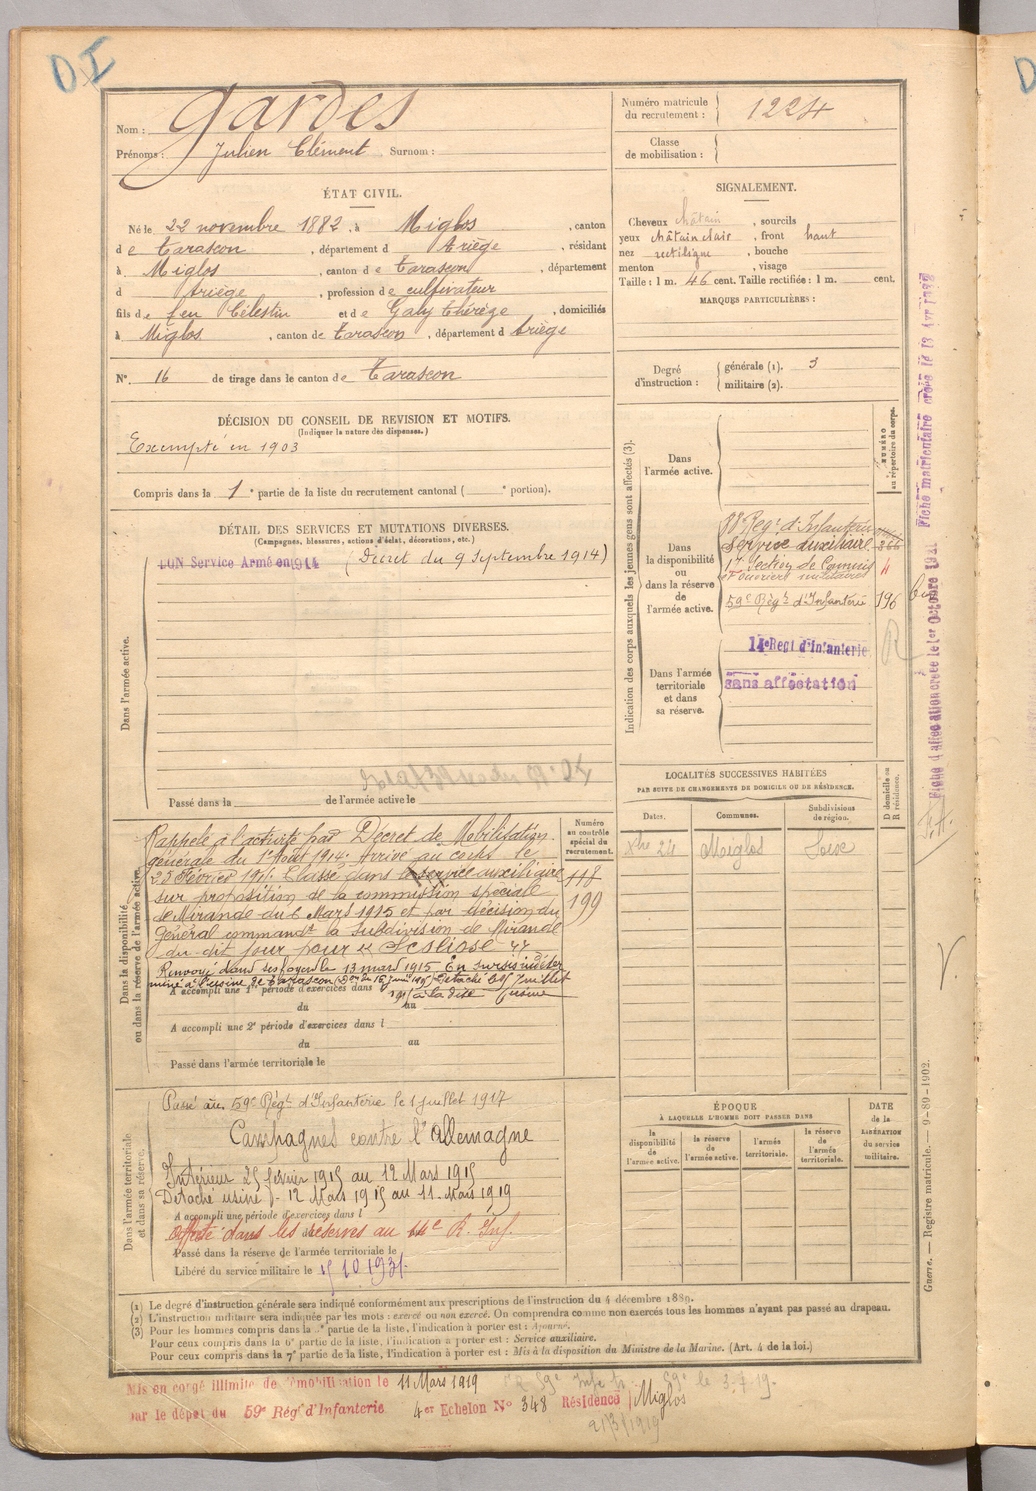 D.I
Nom : Gardes
Prénoms : Julien Clément Surnom :
Numéro matricule du recrutement : 1224
Classe de mobilisation :
ÉTAT CIVIL.
Né le 22 novembre 1882, à Miglos, canton
de Tarascon, département d Ariège, résidant
à Miglos, canton de Tarascon, département
d Ariège, profession de cultivateur
fils de feu Célestin et de Galy Thérèze, domiciliés
à Miglos, canton de Tarascon, département d Ariège
N° 16 de tirage dans le canton de Tarascon
SIGNALEMENT.
Cheveux châtain, sourcils
yeux châtain clair, front haut
nez rectiligne, bouche
menton, visage
Taille : 1 m. 46 cent. Taille rectifiée : 1 m. cent.
MARQUES PARTICULIÈRES :
Degré d'instruction : générale (1). 3
militaire (2).
DÉCISION DU CONSEIL DE REVISION ET MOTIFS.
(Indiquer la nature des dispenses.)
Exempté en 1903
Compris dans la 1e partie de la liste du recrutement cantonal ( e portion).
DÉTAIL DES SERVICES ET MUTATIONS DIVERSES.
(Campagnes, blessures, actions d'éclat, décorations, etc.)
Dans l'armée active.
BON Service Armé en 1914 (Décret du 9 Septembre 1914)
Passé dans la de l'armée active le
Indication des corps auxquels les jeunes gens sont affectés (3).
NUMÉRO au répertoire du corps.
Dans l'armée active.
Dans la disponibilité ou dans la réserve de l'armée active.
88 Regt d'Infanterie
Service auxiliaire
17e Section de Commis
et Ouvriers militaires
59e Régt d'Infanterie 196
Dans l'armée territoriale et dans sa réserve.
14e Regt d'Infanterie
sans affectation
R
LOCALITÉS SUCCESSIVES HABITÉES
PAR SUITE DE CHANGEMENTS DE DOMICILE OU DE RÉSIDENCE.
Dates. Communes. Subdivisions de région. D domicile ou R résidence.
Xbre 24 Miglos Foix
Dans la disponibilité ou dans la réserve de l'armée active.
Numéro au contrôle spécial du recrutement.
Rappelé à l'activité par Décret de Mobilisation
générale du 1er Août 1914. Arrivé au corps le
25 Février 1915. Classé dans le service auxiliaire
sur proposition de la commission spéciale
de Mirande du 6 Mars 1915 et par décision du
Général commandt la Subdivision de Mirande
du dit jour pour
199
Renvoyé dans ses foyers le 13 mars 1915 En sursis indéter
miné à l'usine de Tarascon Détaché le Juillet
à la dite usine
A accompli une 1re période d'exercices dans
du au
A accompli une 2e période d'exercices dans l
du au
Passé dans l'armée territoriale le
Dans l'armée territoriale et dans sa réserve.
Passé au 59e Régt d'Infanterie le 1 juillet 1917
Campagnes contre l'Allemagne
Intérieur 25 février 1915 au 12 Mars 1915
Détaché usine 12 Mars 1915 au 11 Mars 1919
A accompli une période d'exercices dans l
Affecté dans les réserves au 14e R. Inf.
Passé dans la réserve de l'armée territoriale le
Libéré du service militaire le 15 10 1931
ÉPOQUE
À LAQUELLE L'HOMME DOIT PASSER DANS
la disponibilité de l'armée active. la réserve de l'armée active. l'armée territoriale. la réserve de l'armée territoriale.
DATE de la LIBÉRATION du service militaire.
(1) Le degré d'instruction générale sera indiqué conformément aux prescriptions de l'instruction du 4 décembre 1889.
(2) L'instruction militaire sera indiquée par les mots : exercé ou non exercé. On comprendra comme non exercés tous les hommes n'ayant pas passé au drapeau.
(3) Pour les hommes compris dans la 5e partie de la liste, l'indication à porter est : Ajourné.
Pour ceux compris dans la 6e partie de la liste, l'indication à porter est : Service auxiliaire.
Pour ceux compris dans la 7e partie de la liste, l'indication à porter est : Mis à la disposition du Ministre de la Marine. (Art. 4 de la loi.)
Mis en congé illimité de démobilisation le 11 Mars 1919
par le dépôt du 59e Rég d'Infanterie 4er Echelon N° 348 Résidence Miglos
21/3/1919
Guerre. — Registre matricule. — 9-89-1902.